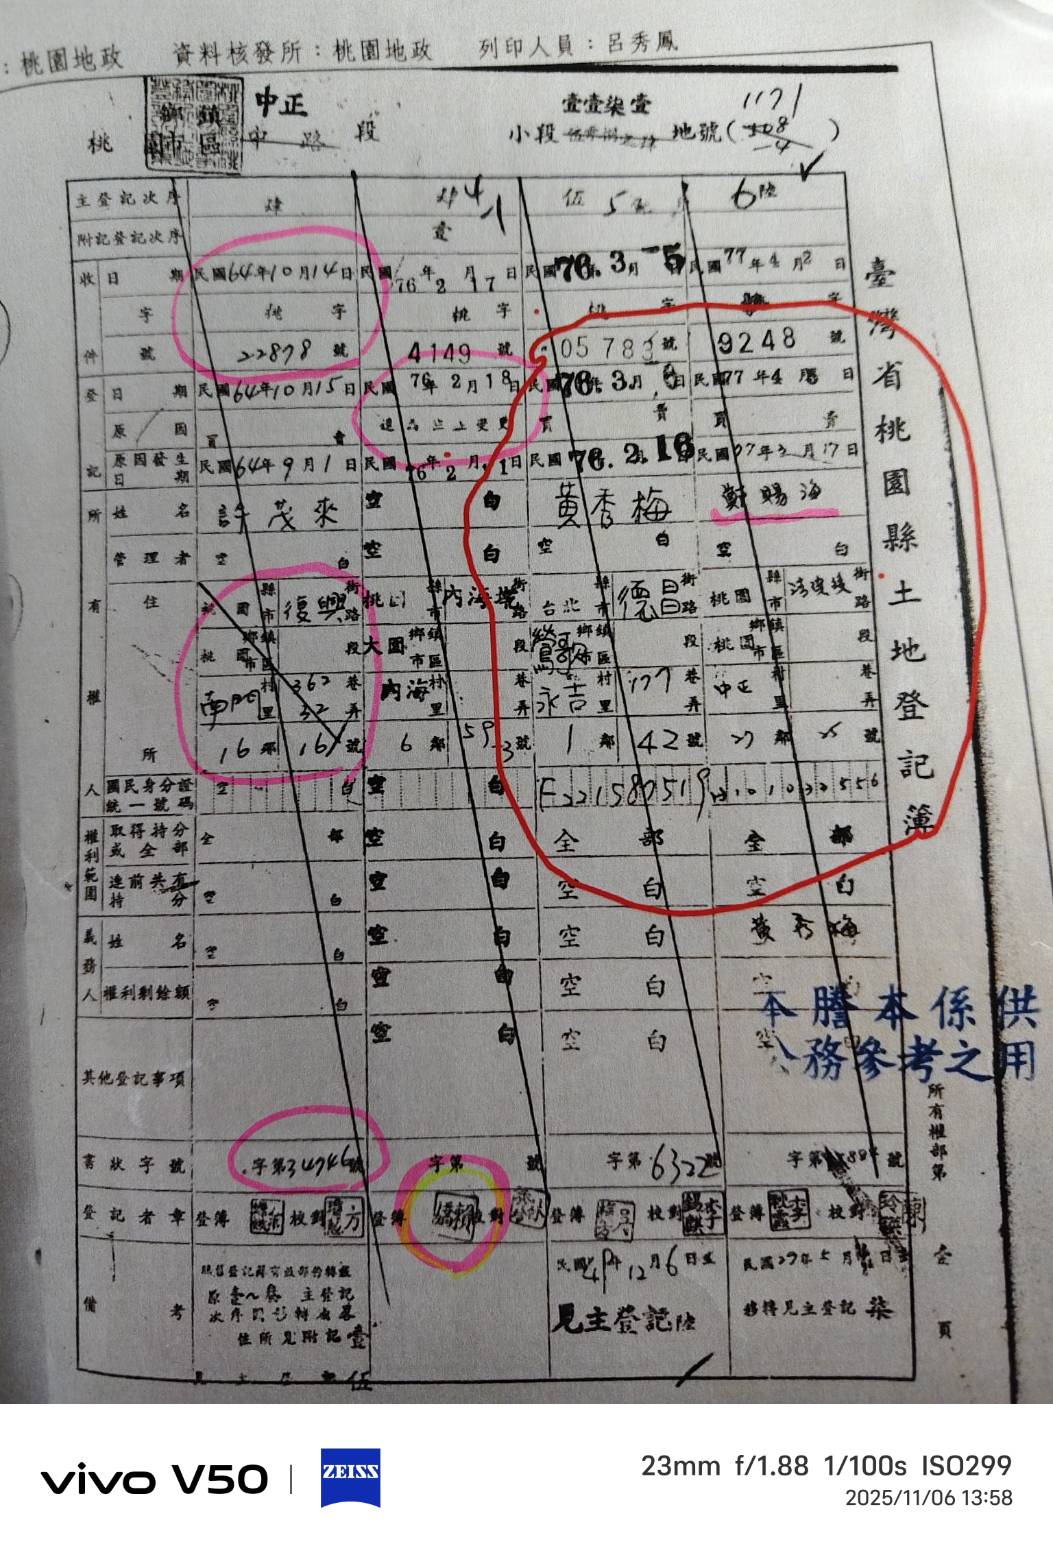 ：桃園地政　資料核發所：桃園地政　列印人員：呂秀鳳
桃 鄉鎮市區 中正 段 小段 壹壹柒壹 地號（1171）
中路 108-4
臺灣省桃園縣土地登記簿
主登記次序 肆 4 伍 5 6 陸
附記登記次序 壹
收件 日期 民國64年10月14日 民國76年2月17日 民國76年3月5日 民國77年4月2日
字 桃字 桃字 桃字 字
號 22878號 4149號 0578 號 9248號
登記 日期 民國64年10月15日 民國76年2月18日 民國76年3月 日 民國77年4月 日
原因 買賣 變更 買賣 買賣
原因發生日期 民國64年9月1日 民國76年2月1日 民國76.2.16 民國77年3月17日
所有權人 姓名 許茂來 空白 黃秀梅 賜海
管理者 空白 空白 空白 空白
住所 桃園縣市 復興街路 桃園縣市 內海墘街路 台北縣市 德昌街路 桃園縣市 街路
桃園鄉鎮市區 段 大園鄉鎮市區 段 鶯歌鄉鎮市區 段 桃園鄉鎮市區 段
南門村里 362巷 32弄 內海村里 巷弄 永吉村里 177巷弄 中正村里 巷弄
16鄰 16號 6鄰 59 3號 1鄰 42號 27鄰 號
國民身分證統一號碼 空白 空白 F221580519
權利範圍 取得持分或全部 全部 空白 全部 全部
連前共有持分 空白 空白 空白 空白
義務人 姓名 空白 空白 空白 黃秀梅
權利剩餘額 空白 空白 空白 空
其他登記事項 空白 空白 空
本謄本係供
公務參考之用
書狀字號 字第34746號 字第 號 字第6322號 字第 號
登記者章 登簿 校對 登簿 賴 校對 登簿 校對 登簿 校對
所有權部第 壹 頁
備考 主登記 民國 年12月6日 民國77年5月 日
次序 住所見附記壹 見主登記陸 移轉見主登記柒
伍
vivo V50 | ZEISS
23mm f/1.88 1/100s ISO299
2025/11/06 13:58